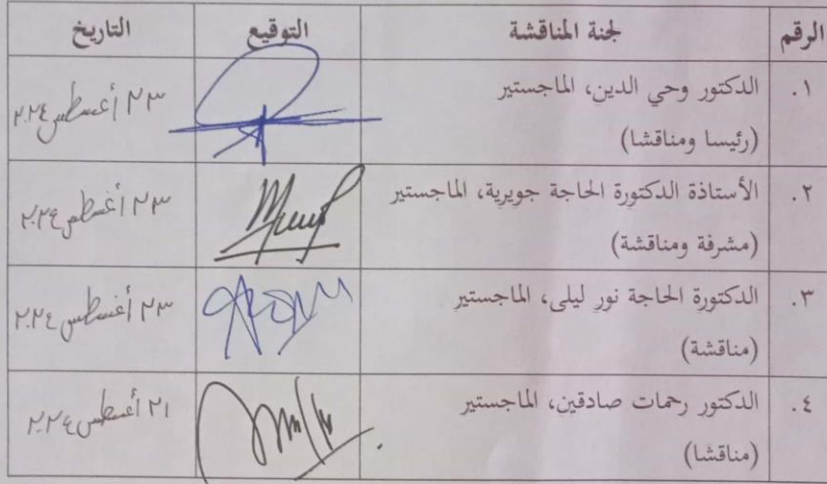 الرقم لجنة المناقشة التوقيع التاريخ
١. الدكتور وحي الدين، الماجستير
(رئيسا ومناقشا)
٢٣ أغسطس ٢٠٢٤
٢. الأستاذة الدكتورة الحاجة جويرية، الماجستير
(مشرفة ومناقشة)
٢٣ أغسطس ٢٠٢٤
٣. الدكتورة الحاجة نور ليلى، الماجستير
(مناقشة)
٢٣ أغسطس ٢٠٢٤
٤. الدكتور رحمات صادقين، الماجستير
(مناقشا)
٢١ أغسطس ٢٠٢٤